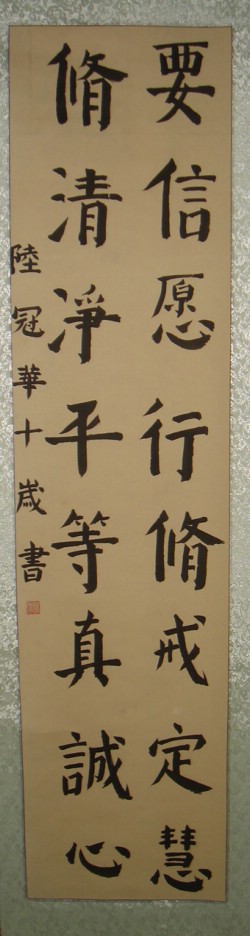 要信愿行脩戒定慧
脩清淨平等真誠心
陸冠華十歲書